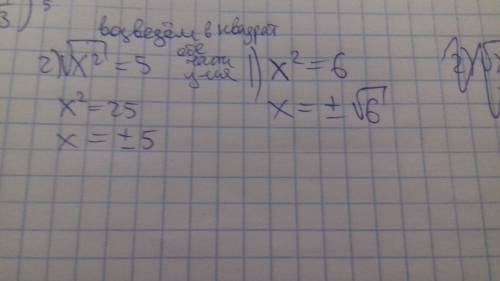 3) 5
возведём в квадрат
обе части ур-ия
2) √x² = 5
x² = 25
x = ±5
1) x² = 6
x = ±√6
2) √x